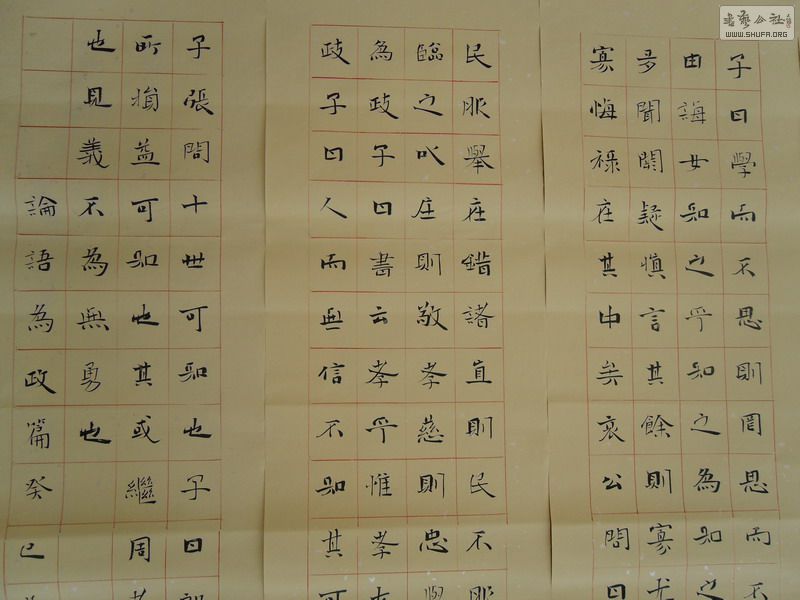 子曰學而不思則罔思而不
由誨女知之乎知之為知之
多聞闕疑慎言其餘則寡尤
寡悔祿在其中矣哀公問曰
民服舉在錯諸直則民不服
臨之以庄則敬孝慈則忠舉
為政子曰書云孝乎惟孝友
政子曰人而無信不知其可
子張問十世可知也子曰
所損益可知也其或繼周
也見義不為無勇也
論語為政篇癸巳
書藝公社
WWW.SHUFA.ORG